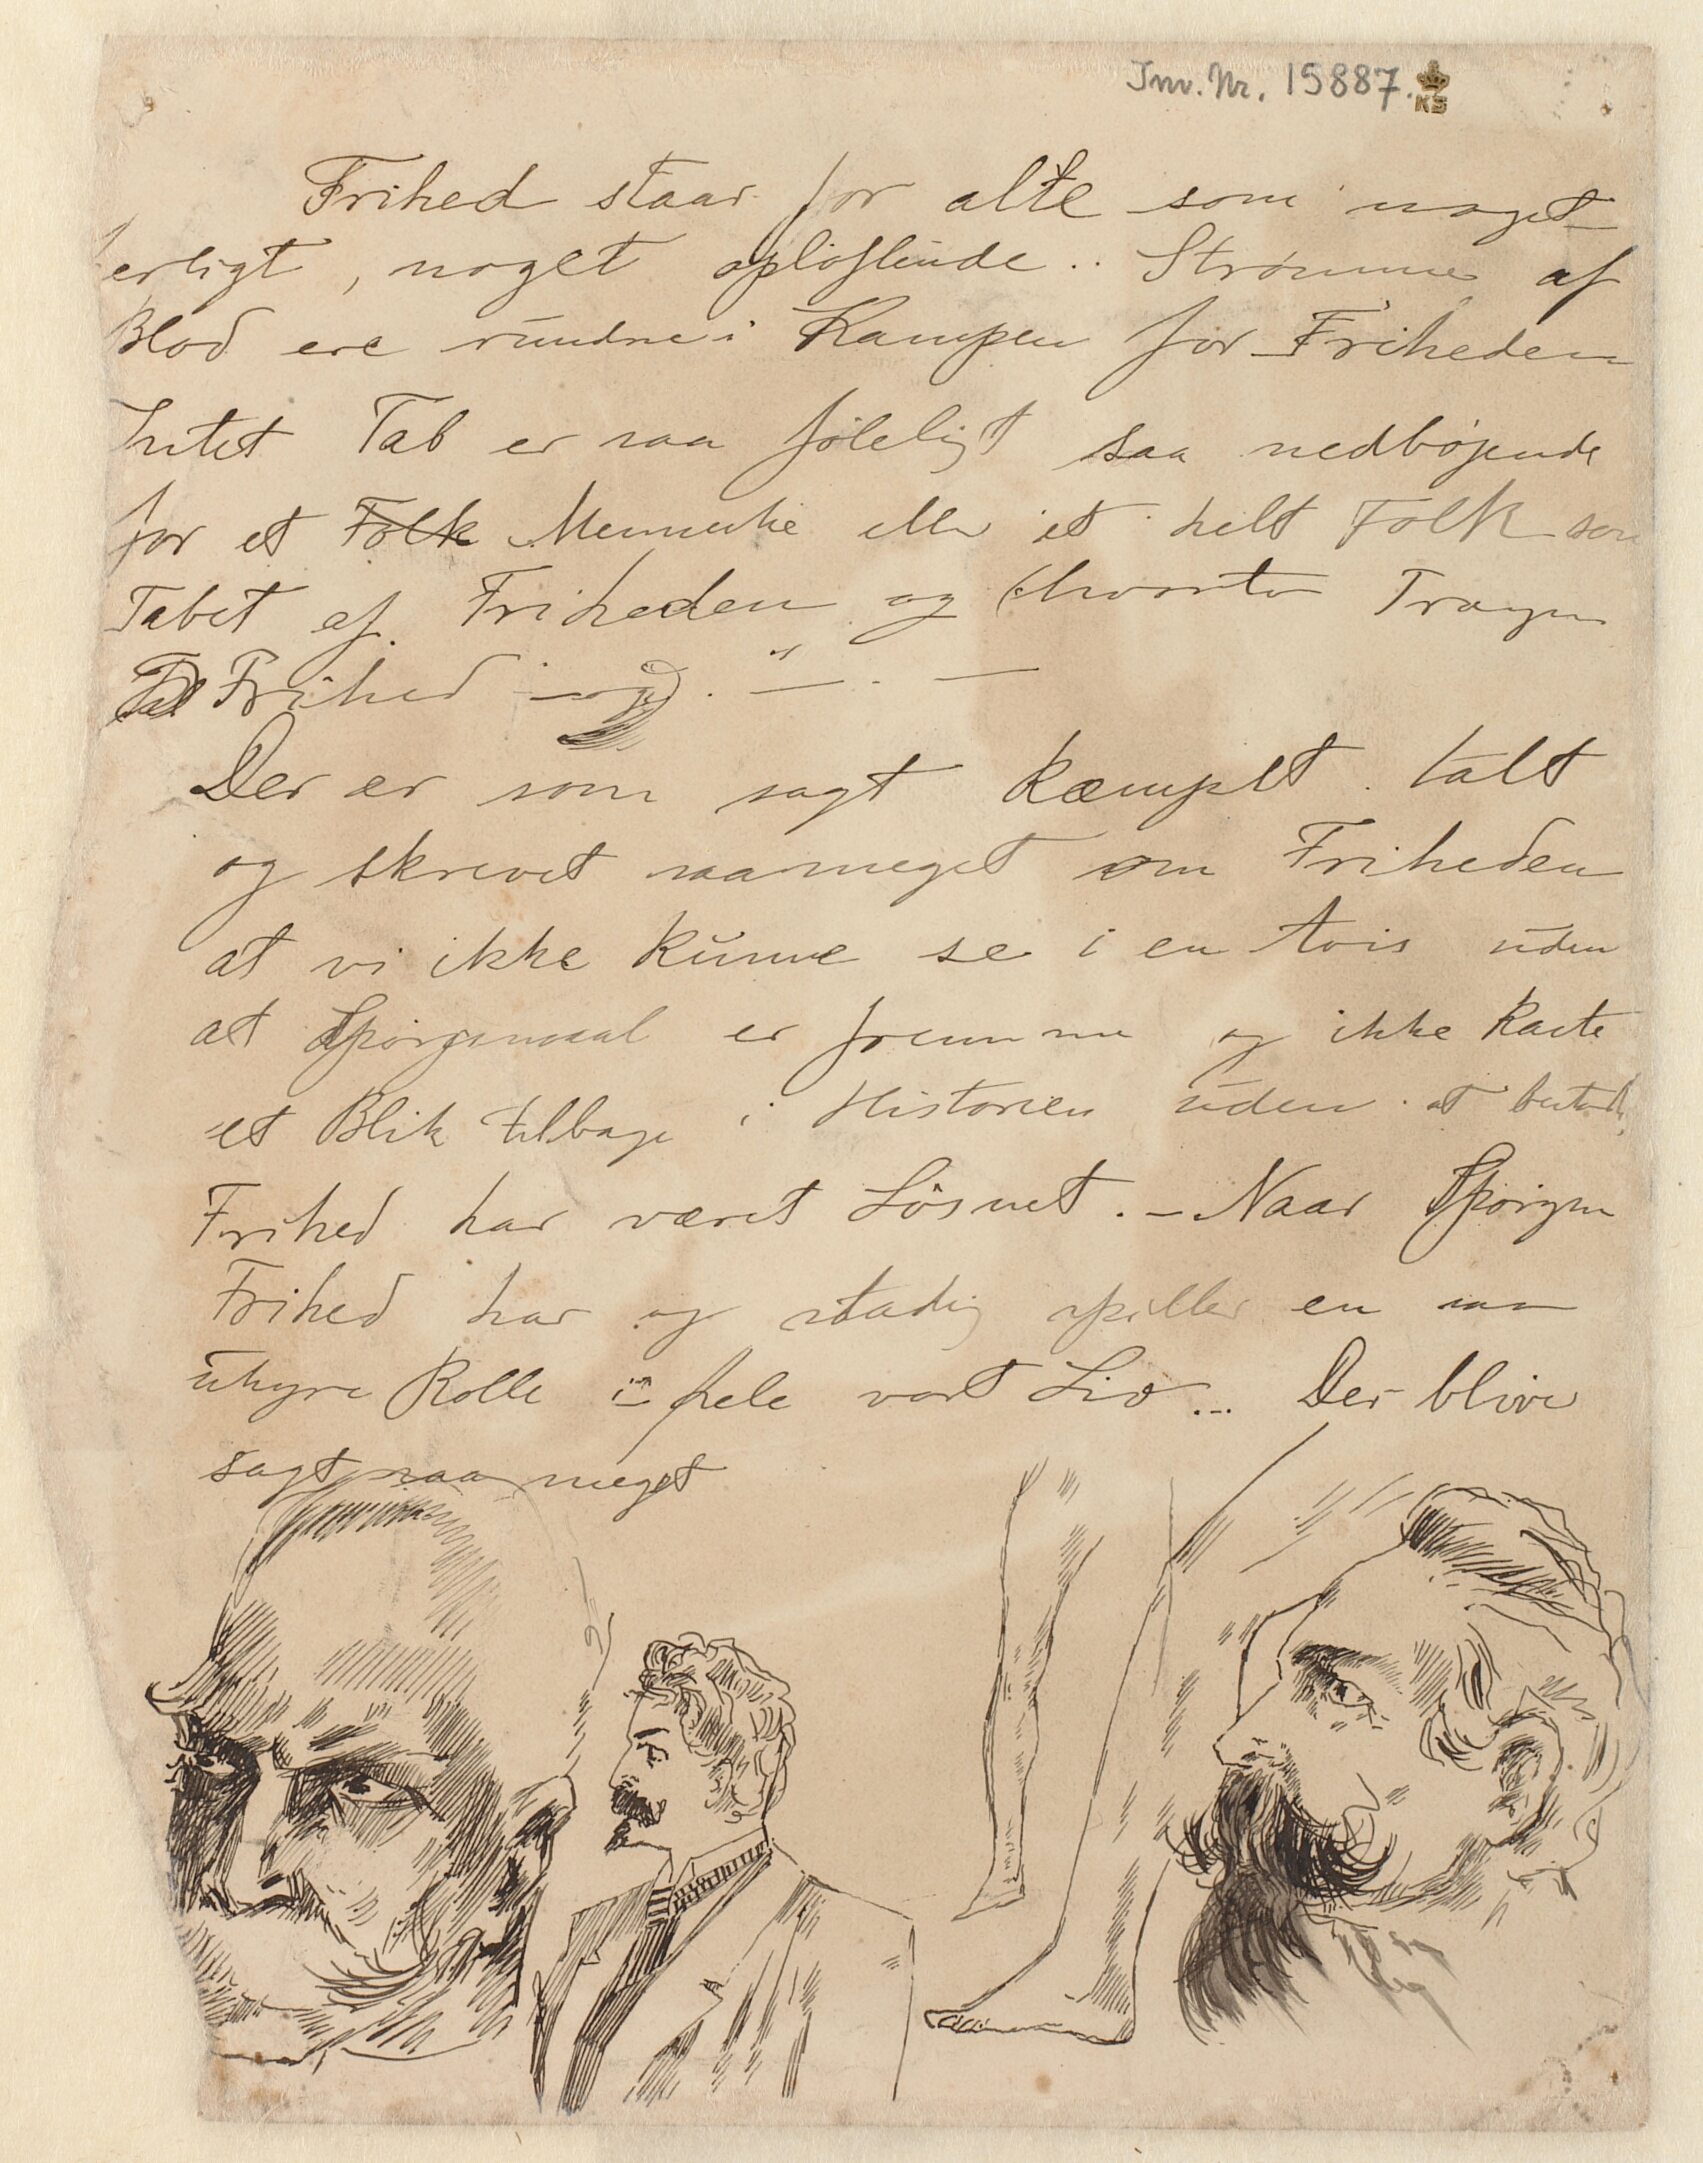 Inv. Nr. 15887.
KS
Frihed staar for alle som noget
erligt, noget opløftende.. Strømme af
Blod ere rundne i Kampen for Friheden
Intet Tab er saa føleligt saa nedbøjende
for et Folk Menneske eller et helt Folk som
Tabet af Friheden og
Frihed
Der er som sagt kæmpet talt
og skrevet saameget om Friheden
at vi ikke kunne se i en Avis uden
at Spørgsmaal er fremme og ikke kaste
et Blik tilbage i Historien uden at
Frihed har været Løsnet. - Naar
Frihed har og stadig spiller en saa
uhyre Rolle i hele vort Liv... Der blive
sagt saa meget